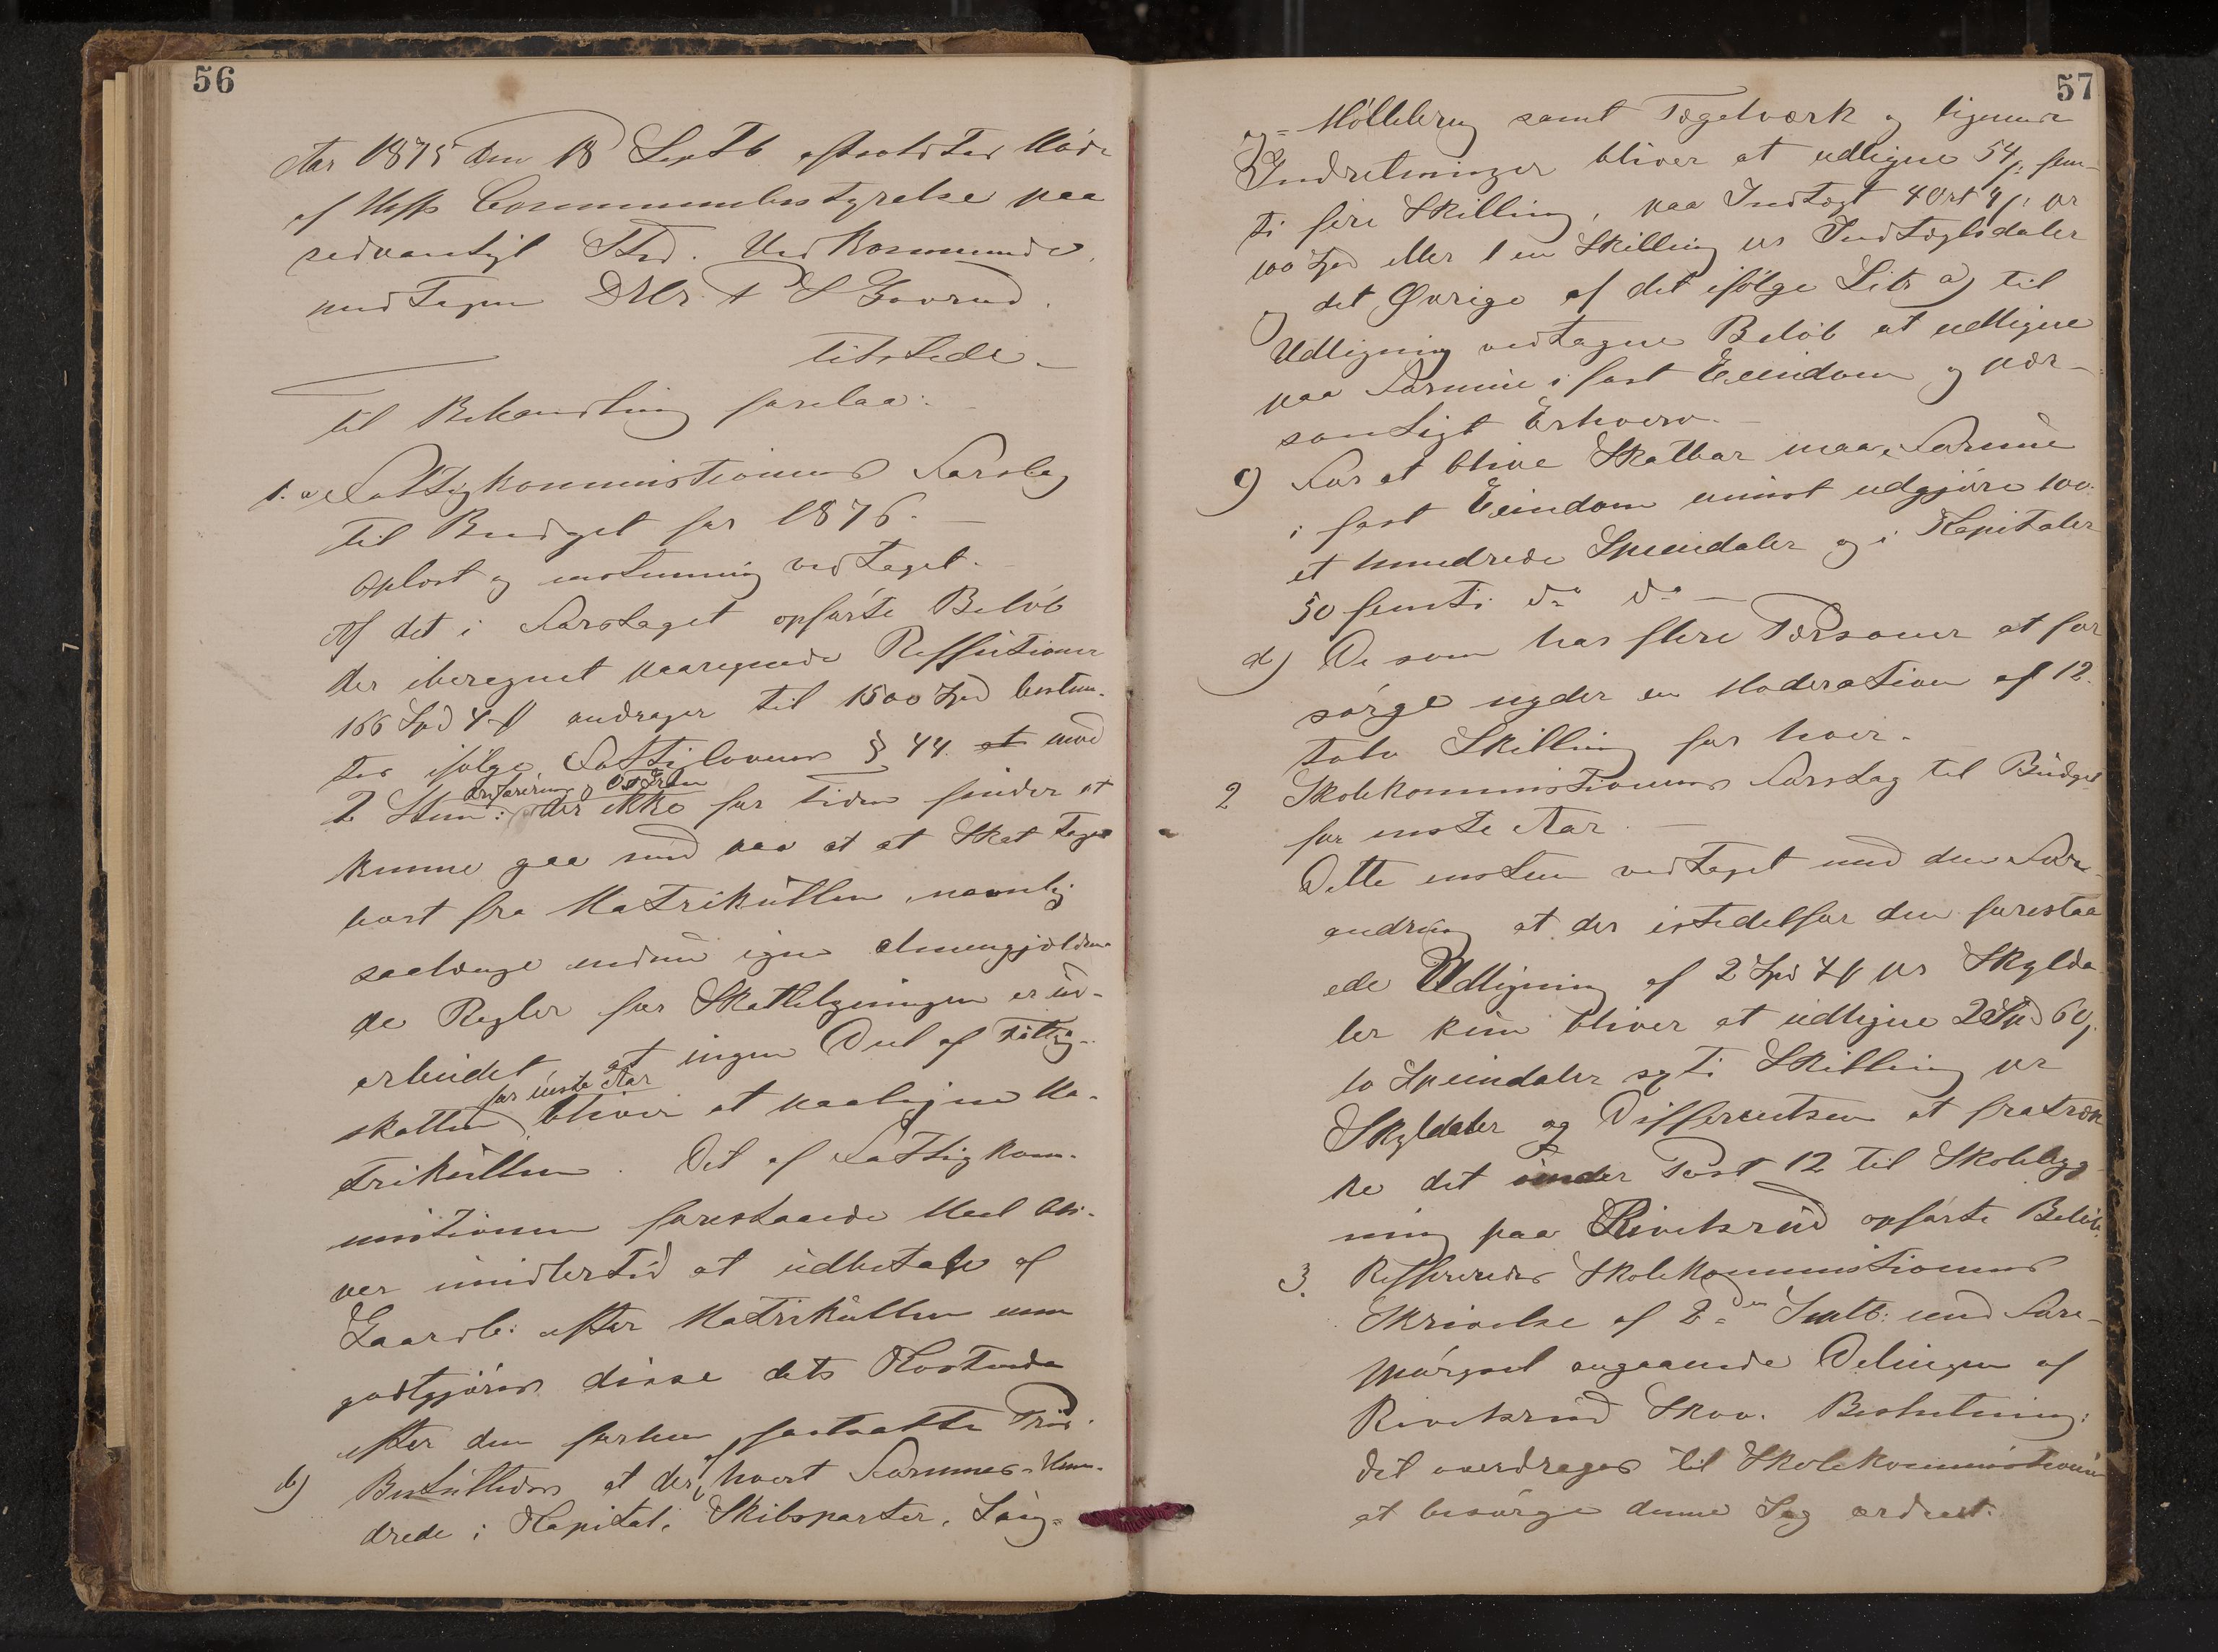 56
Aar 1875 den 18 Septb afholdtes Møde
af Commumbestyrelse paa
sedvanligt Sted. Vedkommende,
undtagen DHr. P S Gavrud.
tilstede.
Til Behandling forelaa:
1. a Fattigkommistionens Forslag
til Budget for 1876.
Oplæst og enstemmig vedtaget.
Af det i Forslaget opførte Beløb
der iberegnet paaregnede
166 Spd 4 andrager til 1500 Spd bestem-
tes ifølge Fattiglovens § 44 at mod
2 Stem: der ikke for Tiden finder at
kunne gaa ind paa at at Skat tages
bort fra Matrikullen, navnlig
saalænge endnu igen almengjælden-
de Regler for Skatteligningen er ud-
arbeidet at ingen Deel af Fattig-
skatten for næste Aar bliver at paaligne Ma-
trikullen. Det af Fattigkom-
mistionen forestaaede Meel
ver imidlertid at udbetale af
Gaardb: efter Matrikullen men
godtgjøres disse dets Kostende
efter den forhen fastsatte Priis.
b) Besluttedes at der af hvert Formues-Hun-
drede i Kapital, Skibsparter, Saug-
57
og- Møllebrug samt Tegelværk og lignende
Indretninger bliver at udligne 54 /: fem-
ti fire Skilling, paa Indtægt 4 Ort 4 /: pr
100 Spd eller 1 en Skilling pr Indtægtsdaler
og det Øvrige af det ifølge Litr a) til
Udligning vedtagne Beløb at udligne
paa Formue i fast Eiendom og pær-
sonligt Erhverv.
c) For at blive Skatbar maa Formue
i fast Eiendom minst udgjøre 100
et hundrede Speciedaler og i Kapitaler
50 femti do do
d) De som har flere Pærsoner at for
sørge nyder en Moderation af 12.
tolv Skilling for hver.
2 Skolekommistionens Forslag til Budget
for næste Aar.
Dette enstem vedtaget med den For-
andring at der istedetfor den forestaa
ede Udligning af 2 Spd 4 / pr Skylda
ler kun bliver at udligne 2 Spd 60/.
to Speciedaler sexti Skilling pr
Skyldaler og Differentsen at fratræk
ke det under Post 12 til Skolebyg-
ning paa opførte Beløb.
3. Reffereredes Skolekommistionens
Skrivelse af 2 den Septb: med Fore-
spørgsel angaaende Delingen af
Skov. Beslutning:
det overdrages til Skolekommistionen
at besørge denne Sag ordnet.